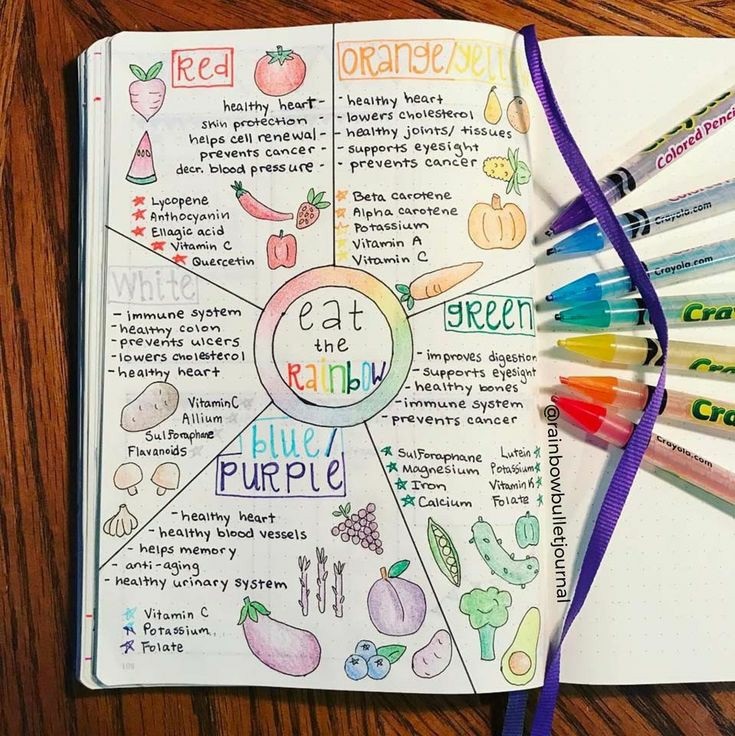 Red
healthy heart -
skin protection -
helps cell renewal -
prevents cancer -
decr. blood pressure -
Lycopene
Anthocyanin
Ellagic acid
Vitamin C
Quercetin
Orange/
- healthy heart
- lowers cholesterol
- healthy joints/ tissues
- supports eyesight
- prevents cancer
Beta carotene
Alpha carotene
Potassium
Vitamin A
Vitamin C
White
- immune system
- healthy colon
- prevents ulcers
- lowers cholesterol
- healthy heart
Vitamin C
Allium
Sulforaphane
Flavanoids
eat
the
Rainbow
green
- improves digestion
- supports eyesight
- healthy bones
- immune system
- prevents cancer
Sulforaphane Lutein
Magnesium Potassium
Iron Vitamin K
Calcium Folate
blue/
PURPLE
- healthy heart
- healthy blood vessels
- helps memory
- anti-aging
- healthy urinary system
Vitamin C
Potassium
Folate
@rainbowbulletjournal
Colored Penci
Crayola.com
Crayola.com
Cra
Cra
Crayola.com